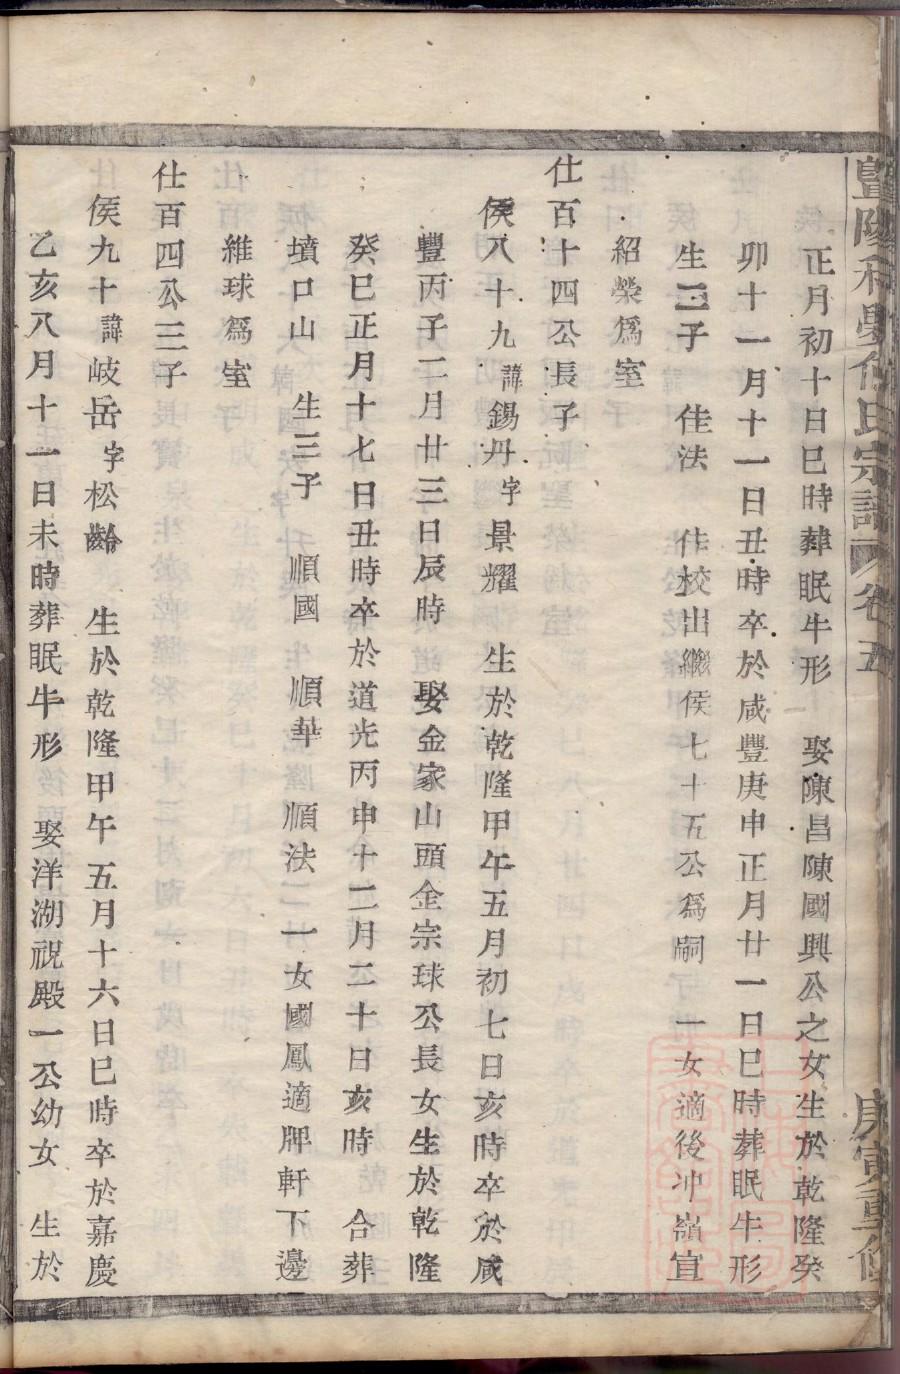 正月初十日巳時葬眠牛形 娶陳昌陳國興公之女生於乾隆癸
卯十一月十一日丑時卒於咸豐庚申正月廿一日巳時葬眠牛形
生三子 佳法 作校出繼侯七十五公為嗣 一女適後冲嶺宣
紹榮爲室
仕百十四公長子
侯八十九諱錫丹字景耀 生於乾隆甲午五月初七日亥時卒於咸
豐丙子二月廿三日辰時 娶金家山頭金宗球公長女生於乾隆
癸巳正月十七日丑時卒於道光丙申十二月二十日亥時 合葬
墳口山 生三子 順國 順華 順法一女國鳳適牌軒下邊
維球爲室
仕百四公三子
侯九十諱岐岳字松齡 生於乾隆甲午五月十六日巳時卒於嘉慶
乙亥八月十一日未時葬眠牛形 娶洋湖祝殿一公幼女 生於
氏宗譜 卷五
庚寅重修